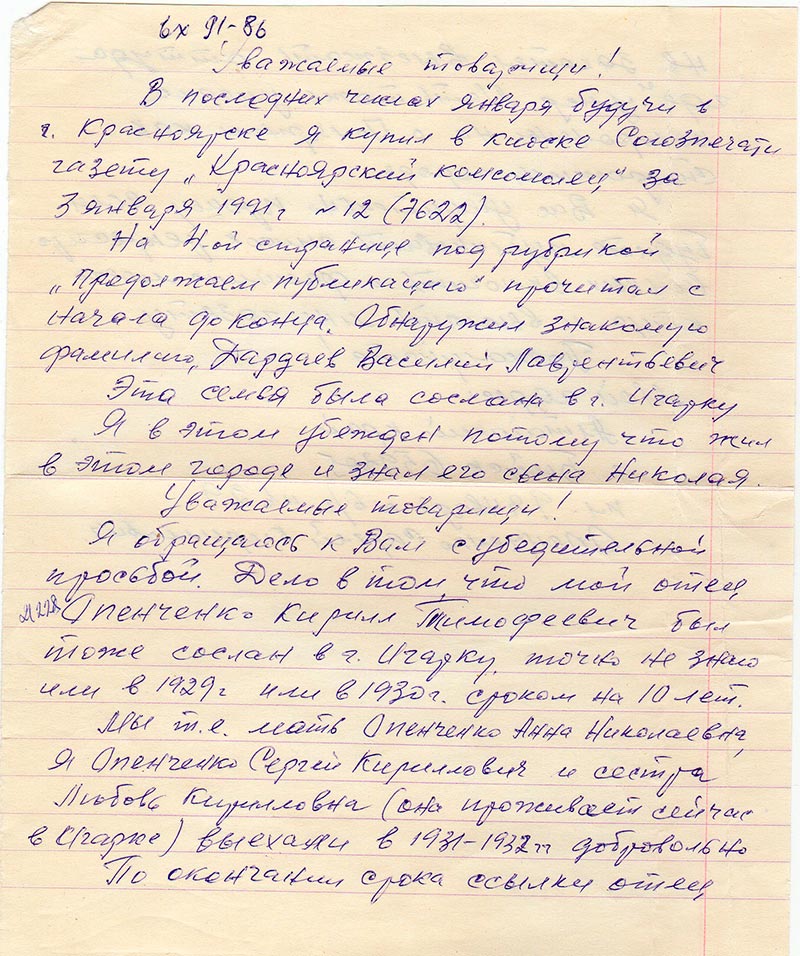 вх 91-86
Уважаемые товарищи!
В последних числах января будучи в
г. Красноярске я купил в киоске Союзпечати
газету „Красноярский комсомолец" за
3 января 1991г №12 (7622).
На 4-ой странице под рубрикой
„Продолжаем публикацию" прочитал с
начала до конца. Обнаружил знакомую
фамилию, Дардаев Василий Лаврентьевич
Эта семья была сослана в г. Игарку
Я в этом убежден потому что жил
в этом городе и знал его сына Николая.
Уважаемые товарищи!
Я обращаюсь к Вам с убедительной
просьбой. Дело в том, что мой отец
Опенченко Кирилл Тимофеевич был
тоже сослан в г. Игарку, точно не знаю
или в 1929г или в 1930г. сроком на 10 лет.
Мы т.е. мать Опенченко Анна Николаевна,
я Опенченко Сергей Кириллович и сестра
Любовь Кирилловна (она проживает сейчас
в Игарке) выехали в 1931-1932гг добровольно
По окончании срока ссылки отец